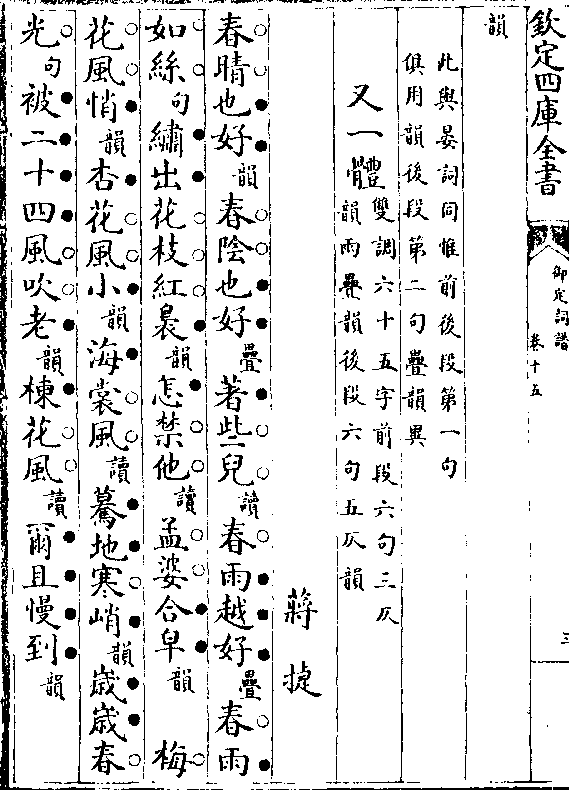 欽定四庫全書
御定詞譜
卷十五
三
韻
此與晏詞同惟前後段第一句
俱用韻後段第二句疊韻異
又一體雙調六十五字前段六句三仄
韻兩疊韻後段六句五仄韻
蔣捷
春晴也好韻春陰也好疊著些兒讀春雨越好疊春雨
如絲句繡出花枝紅裊韻怎禁他讀孟婆合皁韻梅
花風悄韻杏花風小韻海棠風讀驀地寒峭韻歲歲春
光句被二十四風吹老韻楝花風讀爾且慢到韻